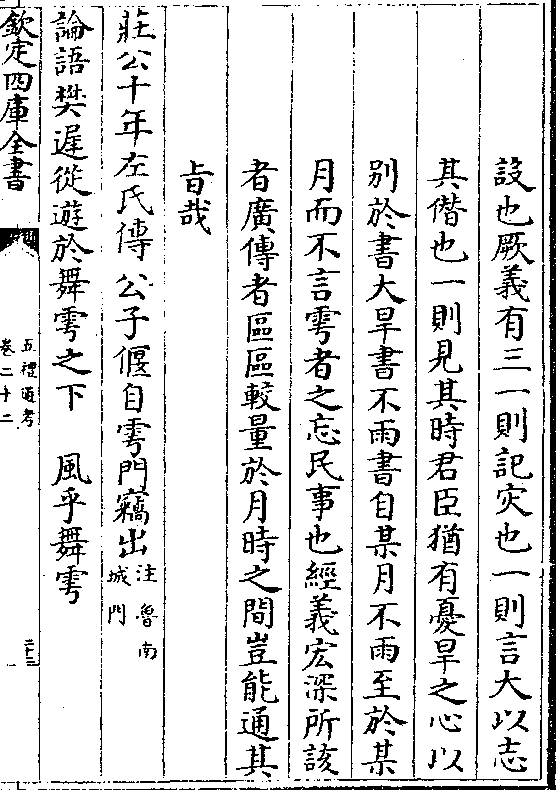 設也厥義有三一則記灾也一則言大以志
其僭也一則見其時君臣猶有憂旱之心以
别於書大旱書不雨書自某月不雨至於某
月而不言雩者之忘民事也經義宏深所該
者廣傳者區區較量於月時之間豈能通其
旨哉
莊公十年左氏傳 公子偃自雩門竊出 注魯南城門
論語樊遲從遊於舞雩之下 風乎舞雩
欽定四庫全書
五禮通考
卷二十二
二十三